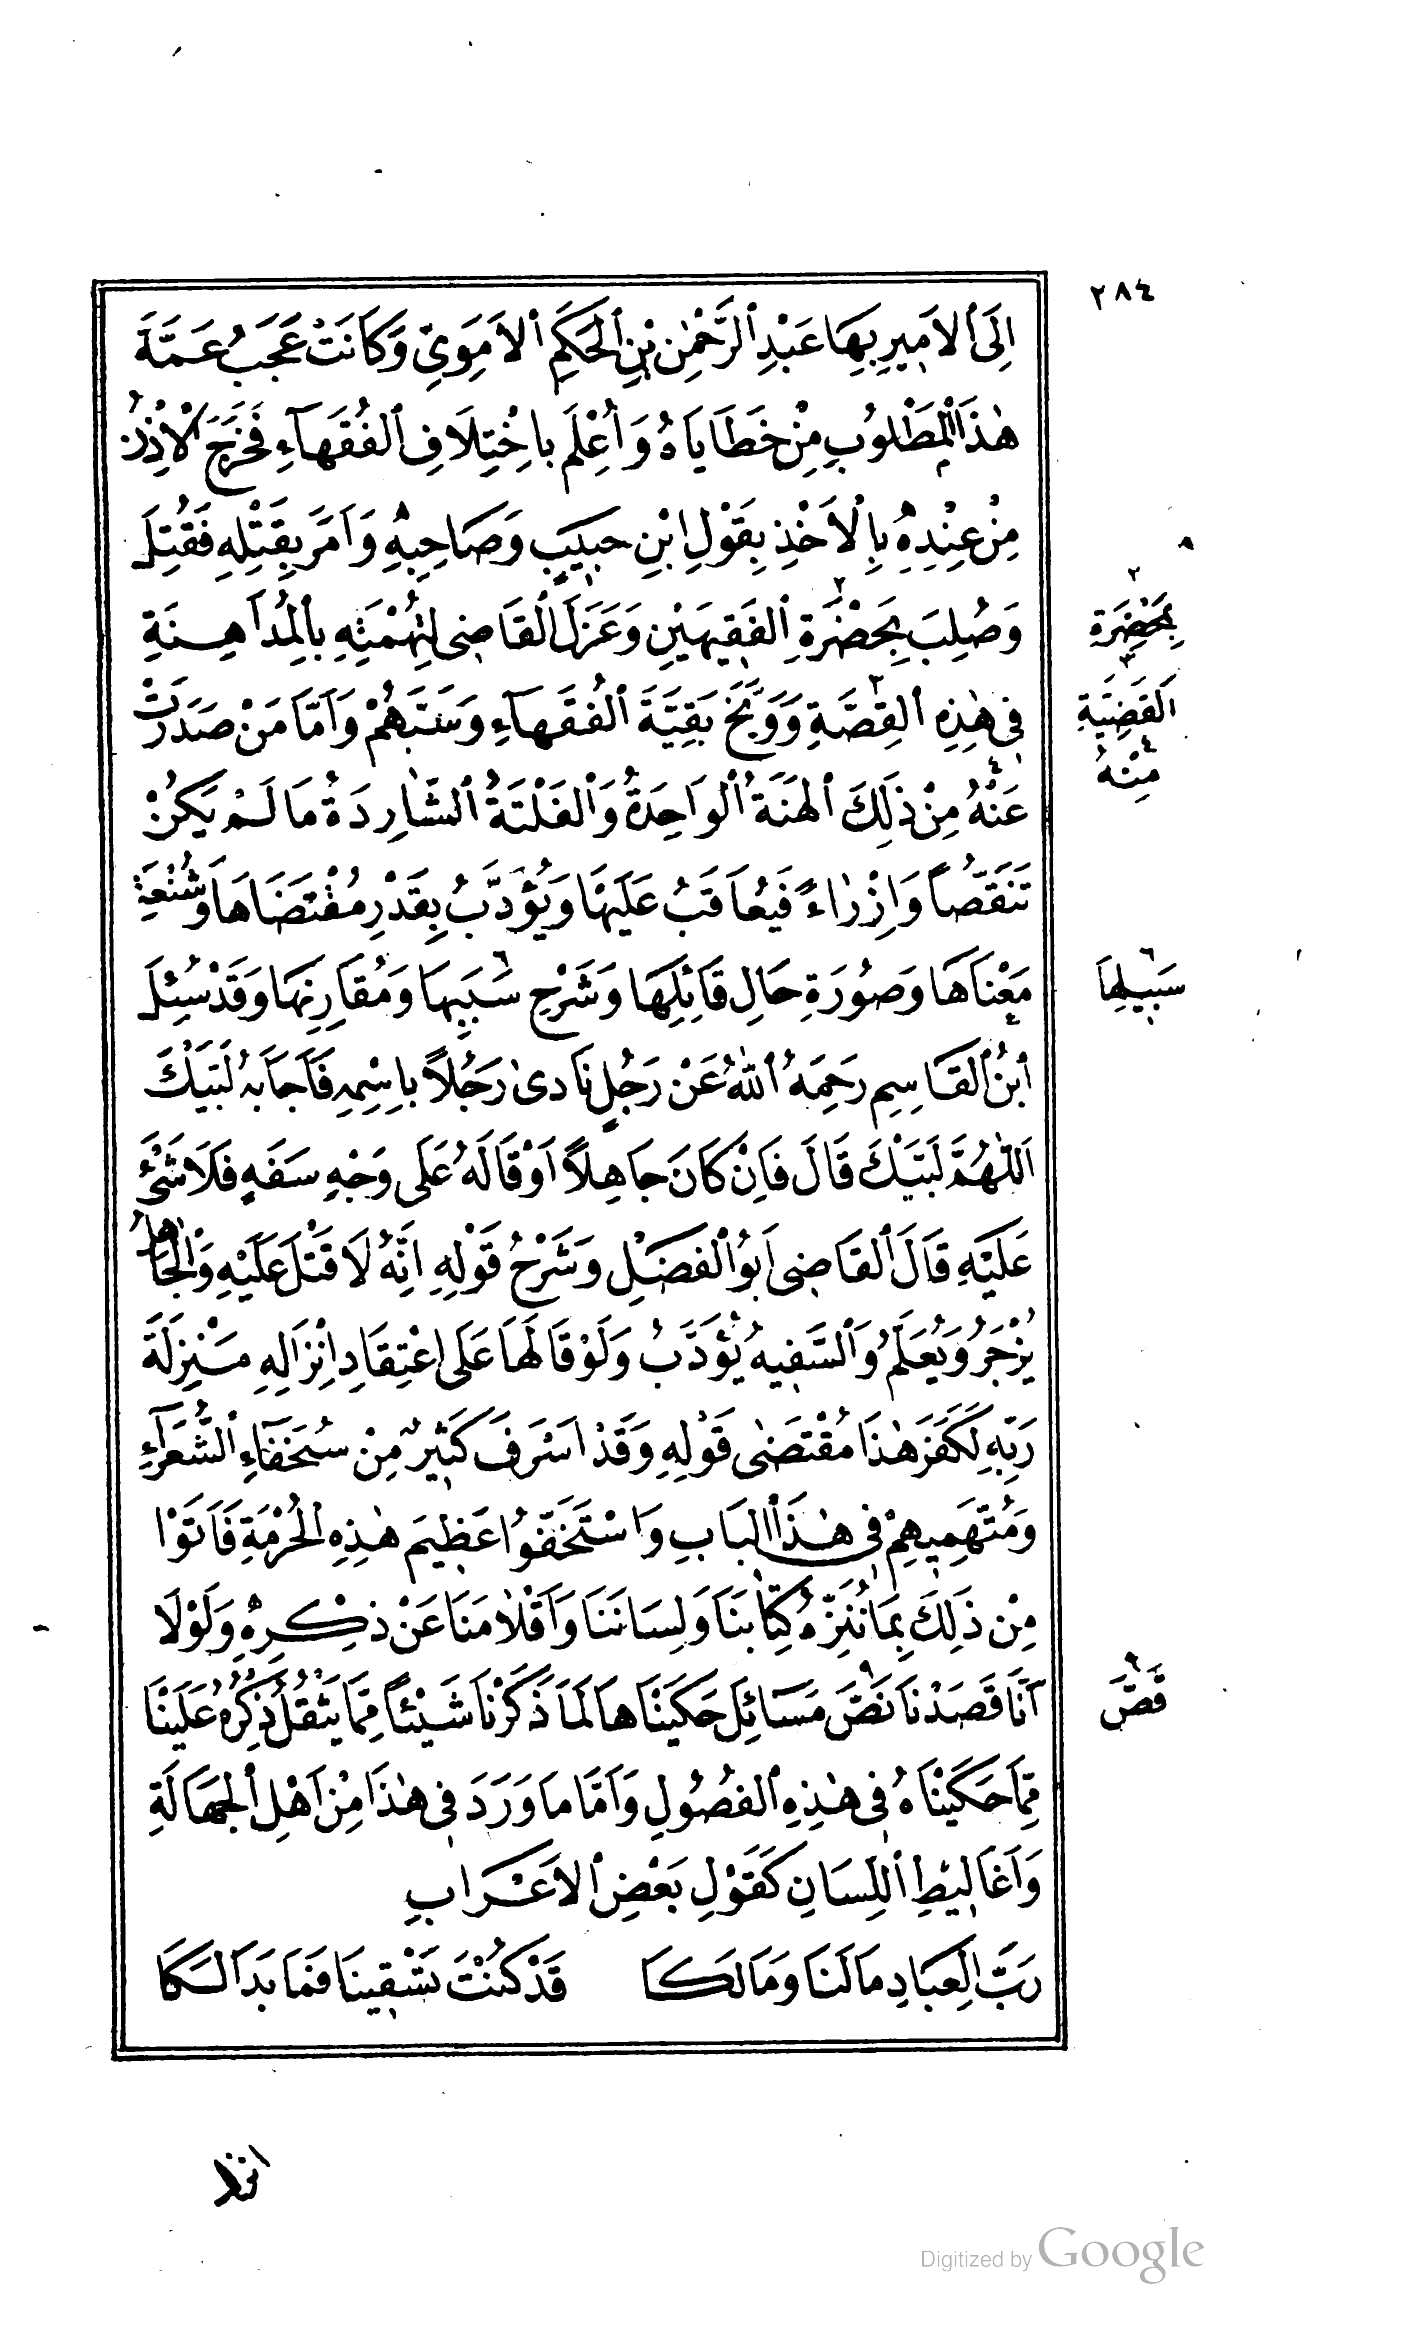 ٢٨٤
اِلَى الْاَمِيرِ بِهَا عَبْدِ الرَّحْمٰنِ بْنِ الْحَكَمِ الْاَمَوِيِّ وَكَانَتْ عَجَبُ عَمَّةَ
هٰذَا الْمَطْلُوبِ مِنْ خَطَايَاهُ وَاُعْلِمَ بِاخْتِلَافِ الْفُقَهَآءِ فَخَرَجَ الْاِذْنُ
مِنْ عِنْدِهِ بِالْاَخْذِ بِقَوْلِ ابْنِ حَبِيبٍ وَصَاحِبِهِ وَاَمَرَ بِقَتْلِهِ فَقُتِلَ
وَصُلِبَ بِحَضْرَةِ الْفَقِيهَيْنِ وَعَزَلَ الْقَاضِى لِتُهْمَتِهِ بِالْمُدَاهَنَةِ
فِى هٰذِهِ الْقِصَّةِ وَوَبَّخَ بَقِيَّةَ الْفُقَهَآءِ وَسَبَّهُمْ وَاَمَّا مَنْ صَدَرَتْ
عَنْهُ مِنْ ذٰلِكَ الْهَنَةُ الْوَاحِدَةُ وَالْفَلْتَةُ الشَّارِدَةُ مَا لَمْ يَكُنْ
تَنَقُّصاً وَاِزْرَاءً فَيُعَاقَبُ عَلَيْهَا وَيُؤَدَّبُ بِقَدْرِ مُقْتَضَاهَا وَشُنْعَةِ
مَعْنَاهَا وَصُورَةِ حَالِ قَائِلِهَا وَشَرْحِ سَبَبِهَا وَمُقَارِنِهَا وَقَدْ سُئِلَ
ابْنُ الْقَاسِمِ رَحِمَهُ اللّٰهُ عَنْ رَجُلٍ نَادىٰ رَجُلاً بِاسْمِهِ فَاَجَابَهُ لَبَّيْكَ
اَللّٰهُمَّ لَبَّيْكَ قَالَ فَاِنْ كَانَ جَاهِلاً اَوْ قَالَهُ عَلَى وَجْهِ سَفَهٍ فَلَا شَىْءَ
عَلَيْهِ قَالَ الْقَاضِى اَبُو الْفَضْلِ وَشَرْحُ قَوْلِهِ اَنَّهُ لَا قَتْلَ عَلَيْهِ وَالْجَاهِلُ
يُزْجَرُ وَيُعَلَّمُ وَالسَّفِيهُ يُؤَدَّبُ وَلَوْ قَالَهَا عَلَى اعْتِقَادِ اِنْزَالِهِ مَنْزِلَةَ
رَبِّهِ لَكَفَرَ هٰذَا مُقْتَضٰى قَوْلِهِ وَقَدْ اَسْرَفَ كَثِيرٌ مِنْ سُخَفَاءِ الشُّعَرَآءِ
وَمُتَّهَمِيهِمْ فِى هٰذَا الْبَابِ وَاسْتَخَفُّوا عَظِيمَ هٰذِهِ الْحُرْمَةِ فَاَتَوْا
مِنْ ذٰلِكَ بِمَا نُنَزِّهُ كِتَابَنَا وَلِسَانَنَا وَاَقْلَامَنَا عَنْ ذِكْرِهِ وَلَوْلَا
اَنَّا قَصَدْنَا نَصَّ مَسَائِلَ حَكَيْنَاهَا لَمَا ذَكَرْنَا شَيْئاً مِمَّا يَثْقُلُ ذِكْرُهُ عَلَيْنَا
مِمَّا حَكَيْنَاهُ فِى هٰذِهِ الْفُصُولِ وَاَمَّا مَا وَرَدَ فِى هٰذَا مِنْ اَهْلِ الْجَهَالَةِ
وَاَغَالِيطِ اللِّسَانِ كَقَوْلِ بَعْضِ الْاَعْرَابِ
رَبَّ الْعِبَادِ مَا لَنَا وَمَا لَكَا قَدْ كُنْتَ تَسْقِينَا فَمَا بَدَا لَكَا
٢
بِمَحْضَرَةِ
٣
اَلْقَضِيَّةِ
٤
مِنْهُ
٦
سَبِيلِهَا
٩
قَصَّ
انزل
Digitized by Google